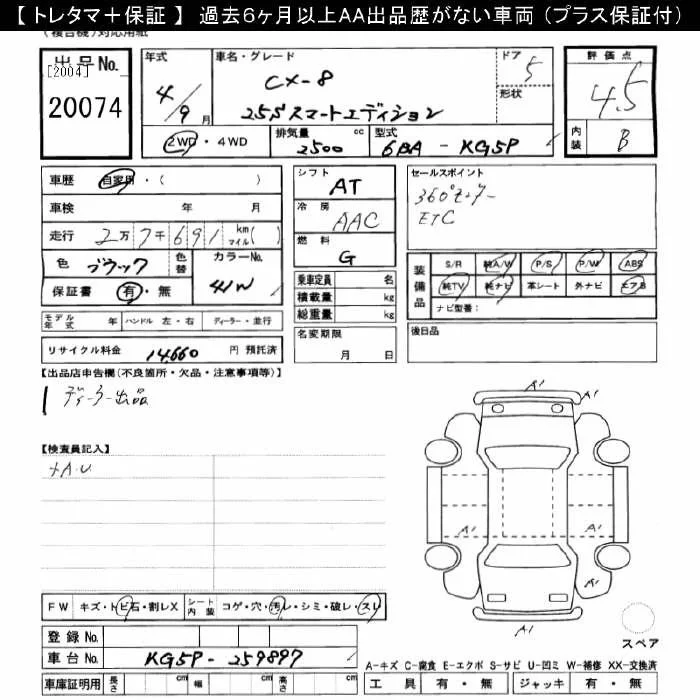 【トレタマ＋保証】 過去6ヶ月以上AA出品歴がない車両（プラス保証付）
(複合機)対応用紙
出品No.
[2004]
20074
年式
4/9月
車名・グレード
CX-8
25Sスマートエディション
ドア
5
形状
評価点
4.5
内装
B
2WD・4WD
排気量 cc
2500
型式
6BA - KG5P
車歴 自家用・( )
車検 年 月
走行 2万7千691 km マイル( )
色 ブラック 色替
カラーNo.
41W
保証書 有・無
モデル年式 年 ハンドル 左・右 ディーラー・並行
リサイクル料金 14,660 円 預託済
シフト
AT
冷房
AAC
燃料
G
乗車定員 名
積載量 kg
総重量 kg
名変期限
月 日
セールスポイント
360°モニター
ETC
装備品
S/R 純A/W P/S P/W ABS
純TV 純ナビ 革シート 外ナビ エアB
ナビ型番：
後日品
【出品店申告欄(不良箇所・欠品・注意事項等)】
ディーラー出品
【検査員記入】
+A.U
A1
A1
A1
A1
A1
A1
FW キズ・トビ石・割レX シート内装 コゲ・穴・汚レ・シミ・破レ・スレ
登録No.
車台No. KG5P-259897
車庫証明用 長さ cm 幅 cm 高さ cm
スペア
A-キズ C-腐食 E-エクボ S-サビ U-凹ミ W-補修 XX-交換済
工具 有・無 ジャッキ 有・無